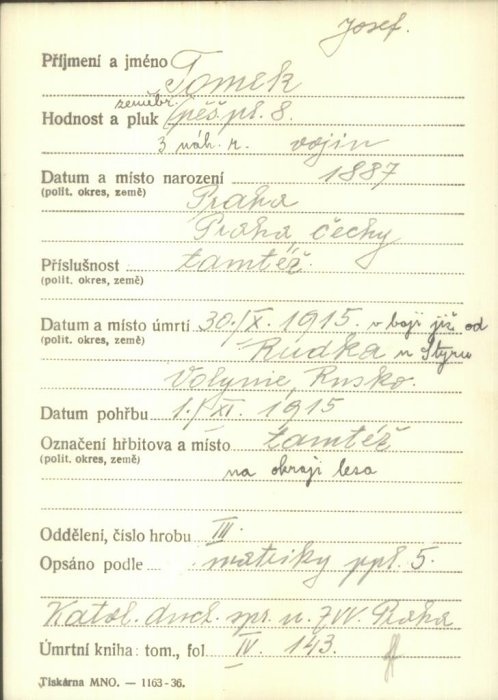 Josef.
Příjmení a jméno Tomek
zeměbr.
Hodnost a pluk pěš. pl. 8.
3 náh. r. vojín
Datum a místo narození 1887
(polit. okres, země) Praha
Praha, čechy
Příslušnost tamtéž.
(polit. okres, země)
Datum a místo úmrtí 30./X. 1915. v boji již. od
(polit. okres, země) Rudka n Styru
Volynie, Rusko.
Datum pohřbu 1./XI. 1915
Označení hřbitova a místo tamtéž
(polit. okres, země) na okraji lesa
Oddělení, číslo hrobu III.
Opsáno podle matriky ppl. 5.
Katol. duch. spr. u. ZVV. Praha
Úmrtní kniha: tom., fol. IV. 143.
Tiskárna MNO. — 1163-36.